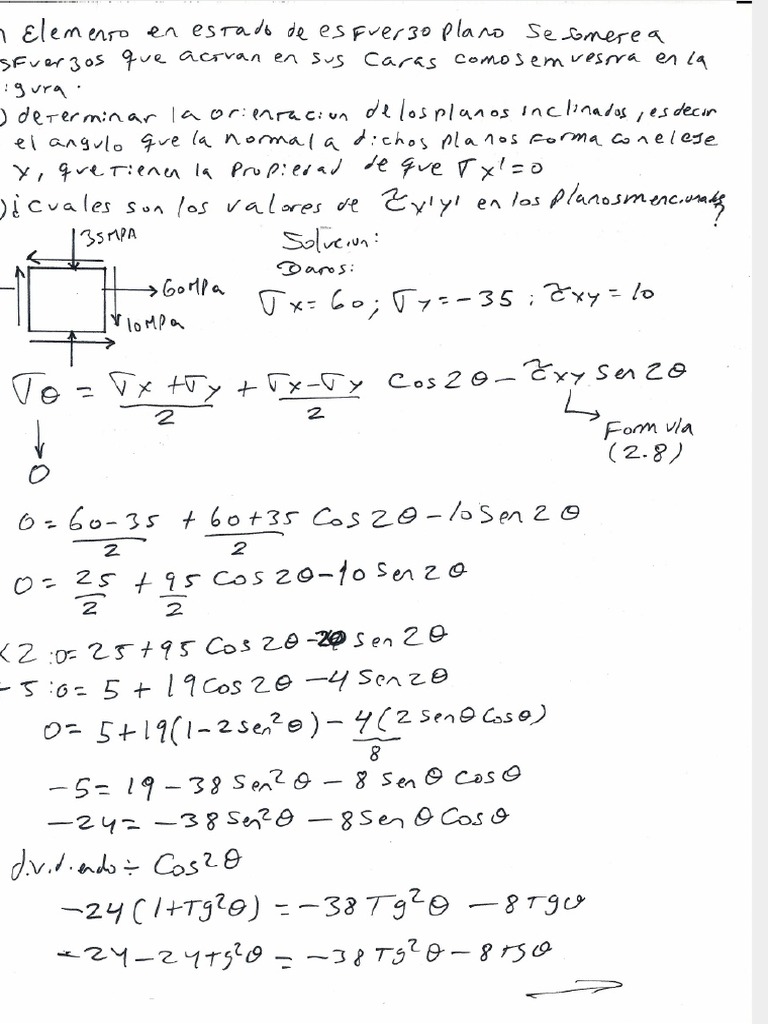 n Elemento en estado de esfuerzo plano se somete a
sfuerzos que actvan en sus caras como se mvestra en la
igura.
) determinar la orientacion de los planos inclinados, es decir
el angulo que la normal a dichos planos forma con el eje
x, que tienen la propiedad de que σx'=0
) ¿cuales son los valores de τx'y' en los planos mencionados?
35MPA
Solucion:
Datos:
→60MPa
10MPa
σx=60; σy=-35; τxy=10
σθ = σx+σy/2 + σx-σy/2 cos2θ - τxy sen2θ
Formula
(2.8)
0
0 = 60-35/2 + 60+35/2 cos2θ - 10 sen2θ
0 = 25/2 + 95/2 cos2θ - 10 sen2θ
x2: 0= 25+95 cos2θ - 20 sen2θ
÷5: 0= 5+19cos2θ - 4 sen2θ
0= 5+19(1-2sen²θ) - 4(2senθ cosθ)
8
-5= 19-38 sen²θ - 8 senθ cosθ
-24= -38sen²θ - 8senθ cosθ
dividiendo ÷ cos²θ
-24(1+Tg²θ) = -38Tg²θ - 8Tgθ
-24-24tg²θ = -38Tg²θ - 8tgθ